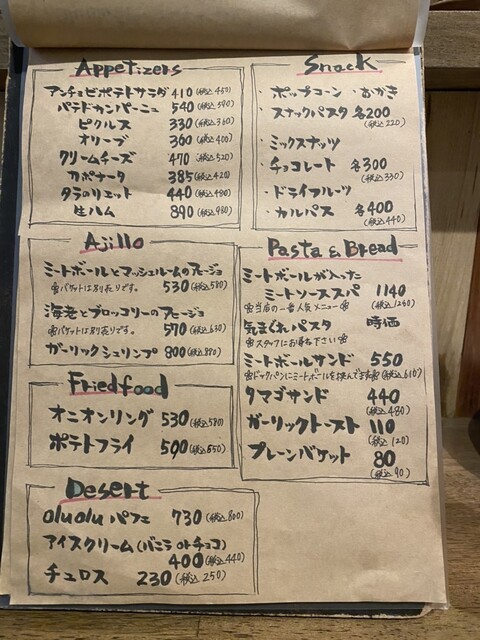 Appetizers
アンチョビポテトサラダ 410 (税込450)
パテドカンパーニュ 540 (税込590)
ピクルス 330 (税込360)
オリーブ 360 (税込400)
クリームチーズ 470 (税込520)
カポナータ 385 (税込420)
タラのリエット 440 (税込480)
生ハム 890 (税込980)
Snack
・ポップコーン ・おかき
・スナックパスタ 各200
(税込220)
・ミックスナッツ
・チョコレート 各300
(税込330)
・ドライフルーツ
・カルパス 各400
(税込440)
Ajillo
ミートボールとマッシュルームのアヒージョ
※バケットは別売りです。 530 (税込580)
海老とブロッコリーのアヒージョ
※バケットは別売りです。 570 (税込630)
ガーリックシュリンプ 800 (税込880)
Pasta & Bread
ミートボールが入った
ミートソーススパ 1140
(税込1260)
※当店の一番人気メニュー※
気まぐれパスタ 時価
※スタッフにお尋ね下さい※
ミートボールサンド 550
※ドックパンにミートボールを挟んでます※ (税込610)
タマゴサンド 440
(税込480)
ガーリックトースト 110
(税込120)
プレーンバケット 80
(税込90)
Friedfood
オニオンリング 530 (税込580)
ポテトフライ 590 (税込650)
Desert
oluolu パフェ 730 (税込800)
アイスクリーム (バニラ or チョコ)
400 (税込440)
チュロス 230 (税込250)